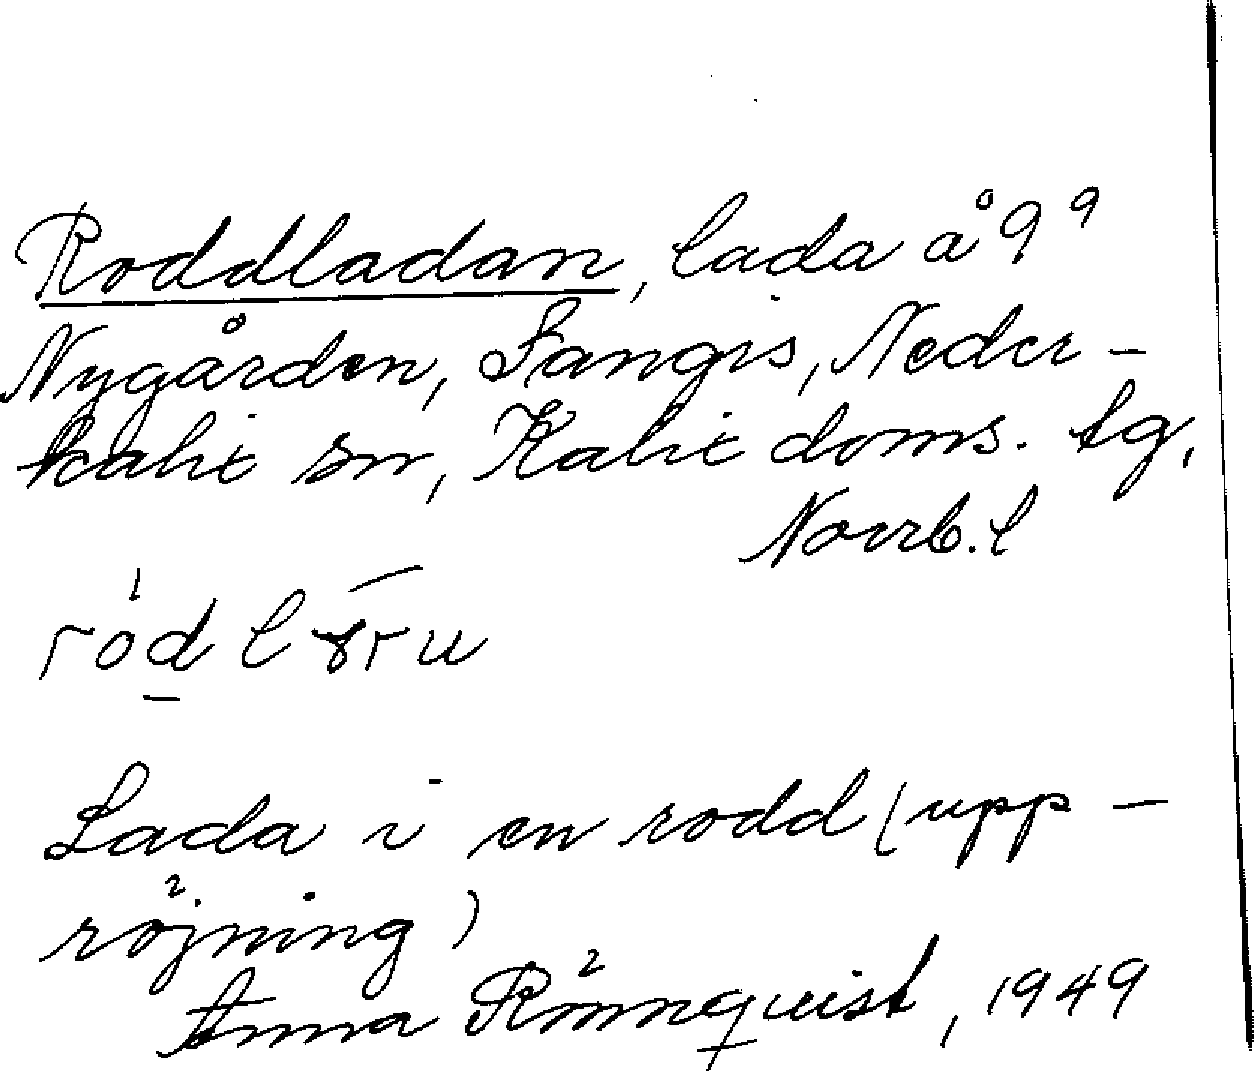 Roddladan, lada å 9⁹
Nygården, Sangis, Neder-
kalix sn, Kalix doms. tg,
Norrb. l
Lada i en rodd (upp-
röjning)
Anna Rönnqvist, 1949